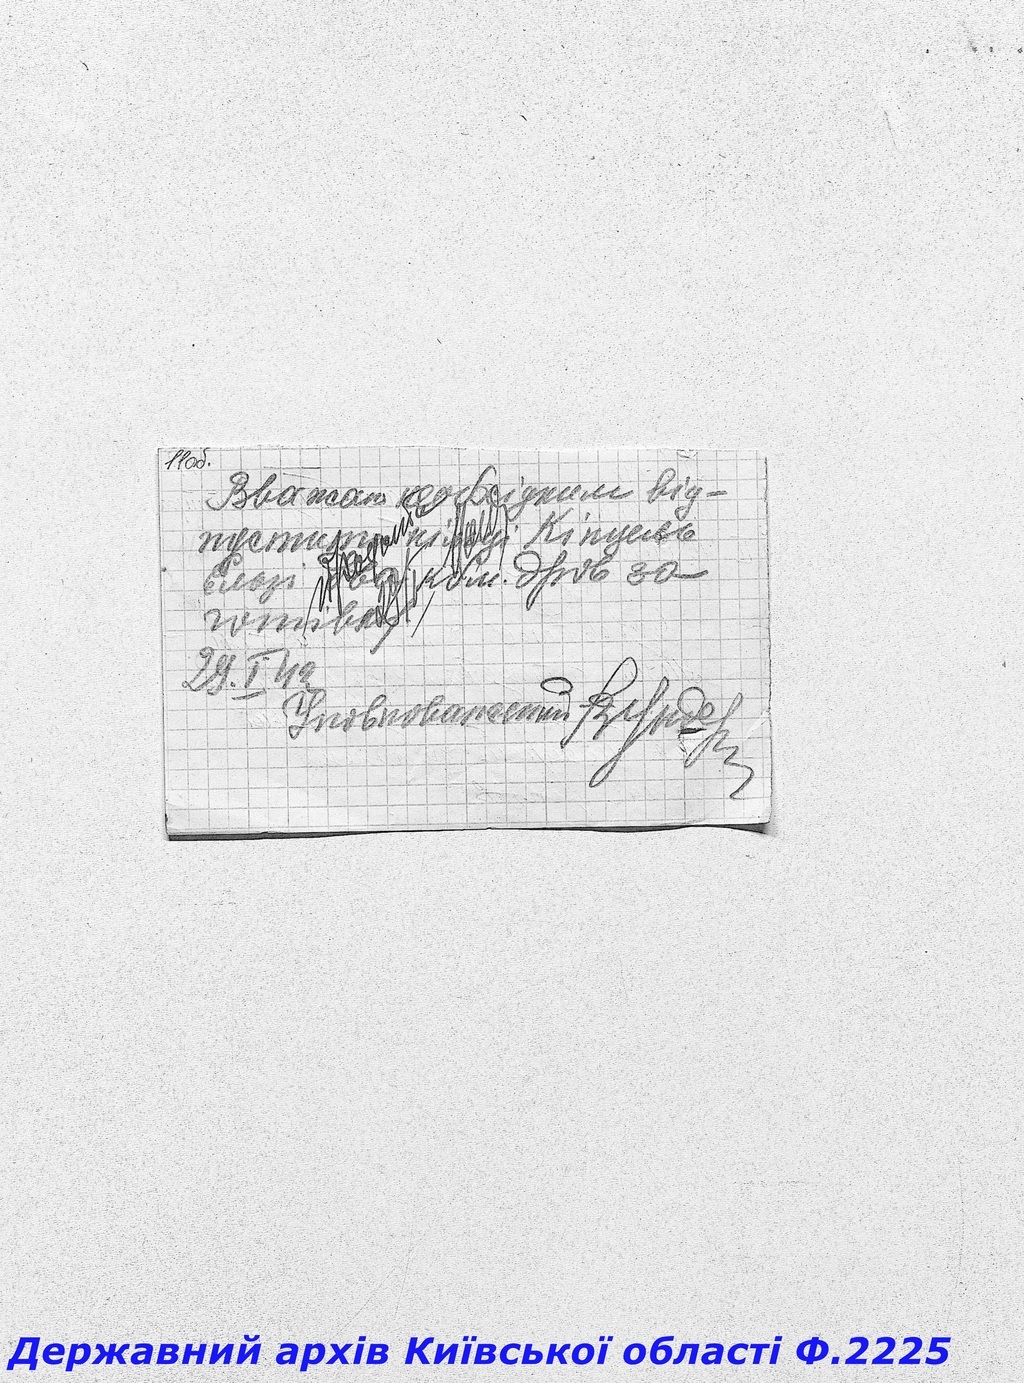 11об.
Вважаю необхідним від-
пустити німці Кінцель
Ользі кб.м. дров за
готівку
29.I 42
Уповноважений
Державний архів Київської області Ф.2225